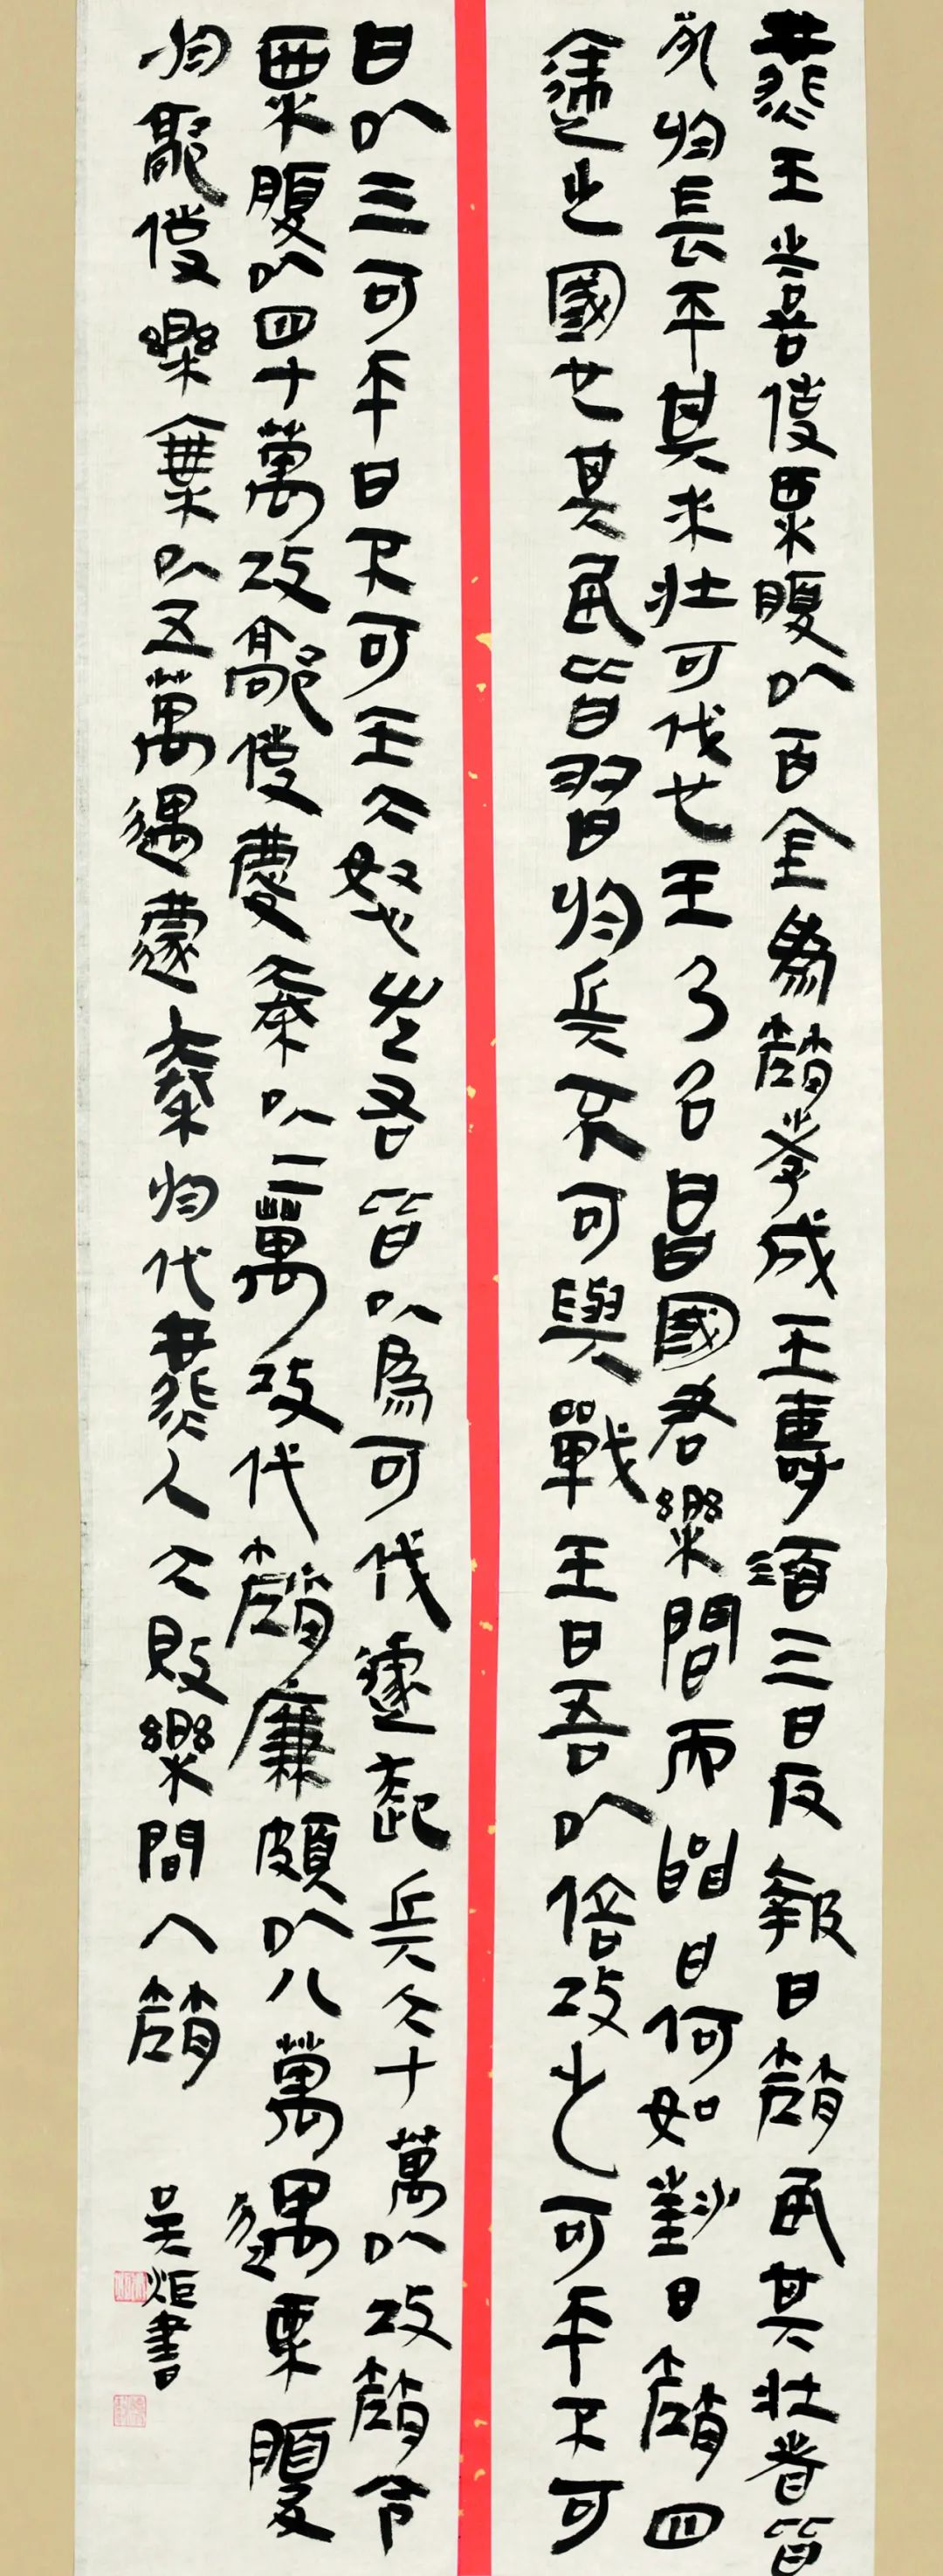 燕王喜使栗腹以百金為趙孝成王壽酒三日反報曰趙民其壯者皆
死於長平其孤未壯可伐也王乃召昌國君樂間而問曰何如對曰趙四
達之國也其民皆習於兵不可與戰王曰吾以倍攻之可乎不可
曰以三可乎曰不可王大怒左右皆以為可伐遽起六十萬以攻趙令
栗腹以四十萬攻鄗使慶秦以二萬攻代趙廉頗以八萬遇栗腹
於鄗使樂乘以五萬遇慶秦於代燕人大敗樂間入趙
吳炬書